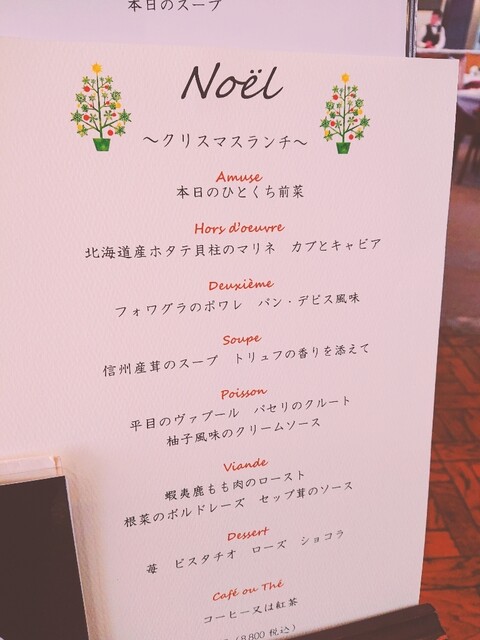 本日のスープ
Noël
～クリスマスランチ～
Amuse
本日のひとくち前菜
Hors d'oeuvre
北海道産ホタテ貝柱のマリネ　カブとキャビア
Deuxième
フォワグラのポワレ　パン・デピス風味
Soupe
信州産茸のスープ　トリュフの香りを添えて
Poisson
平目のヴァプール　パセリのクルート
柚子風味のクリームソース
Viande
蝦夷鹿もも肉のロースト
根菜のボルドレーズ　セップ茸のソース
Dessert
苺　ピスタチオ　ローズ　ショコラ
Café ou Thé
コーヒー又は紅茶
(8,800 税込)